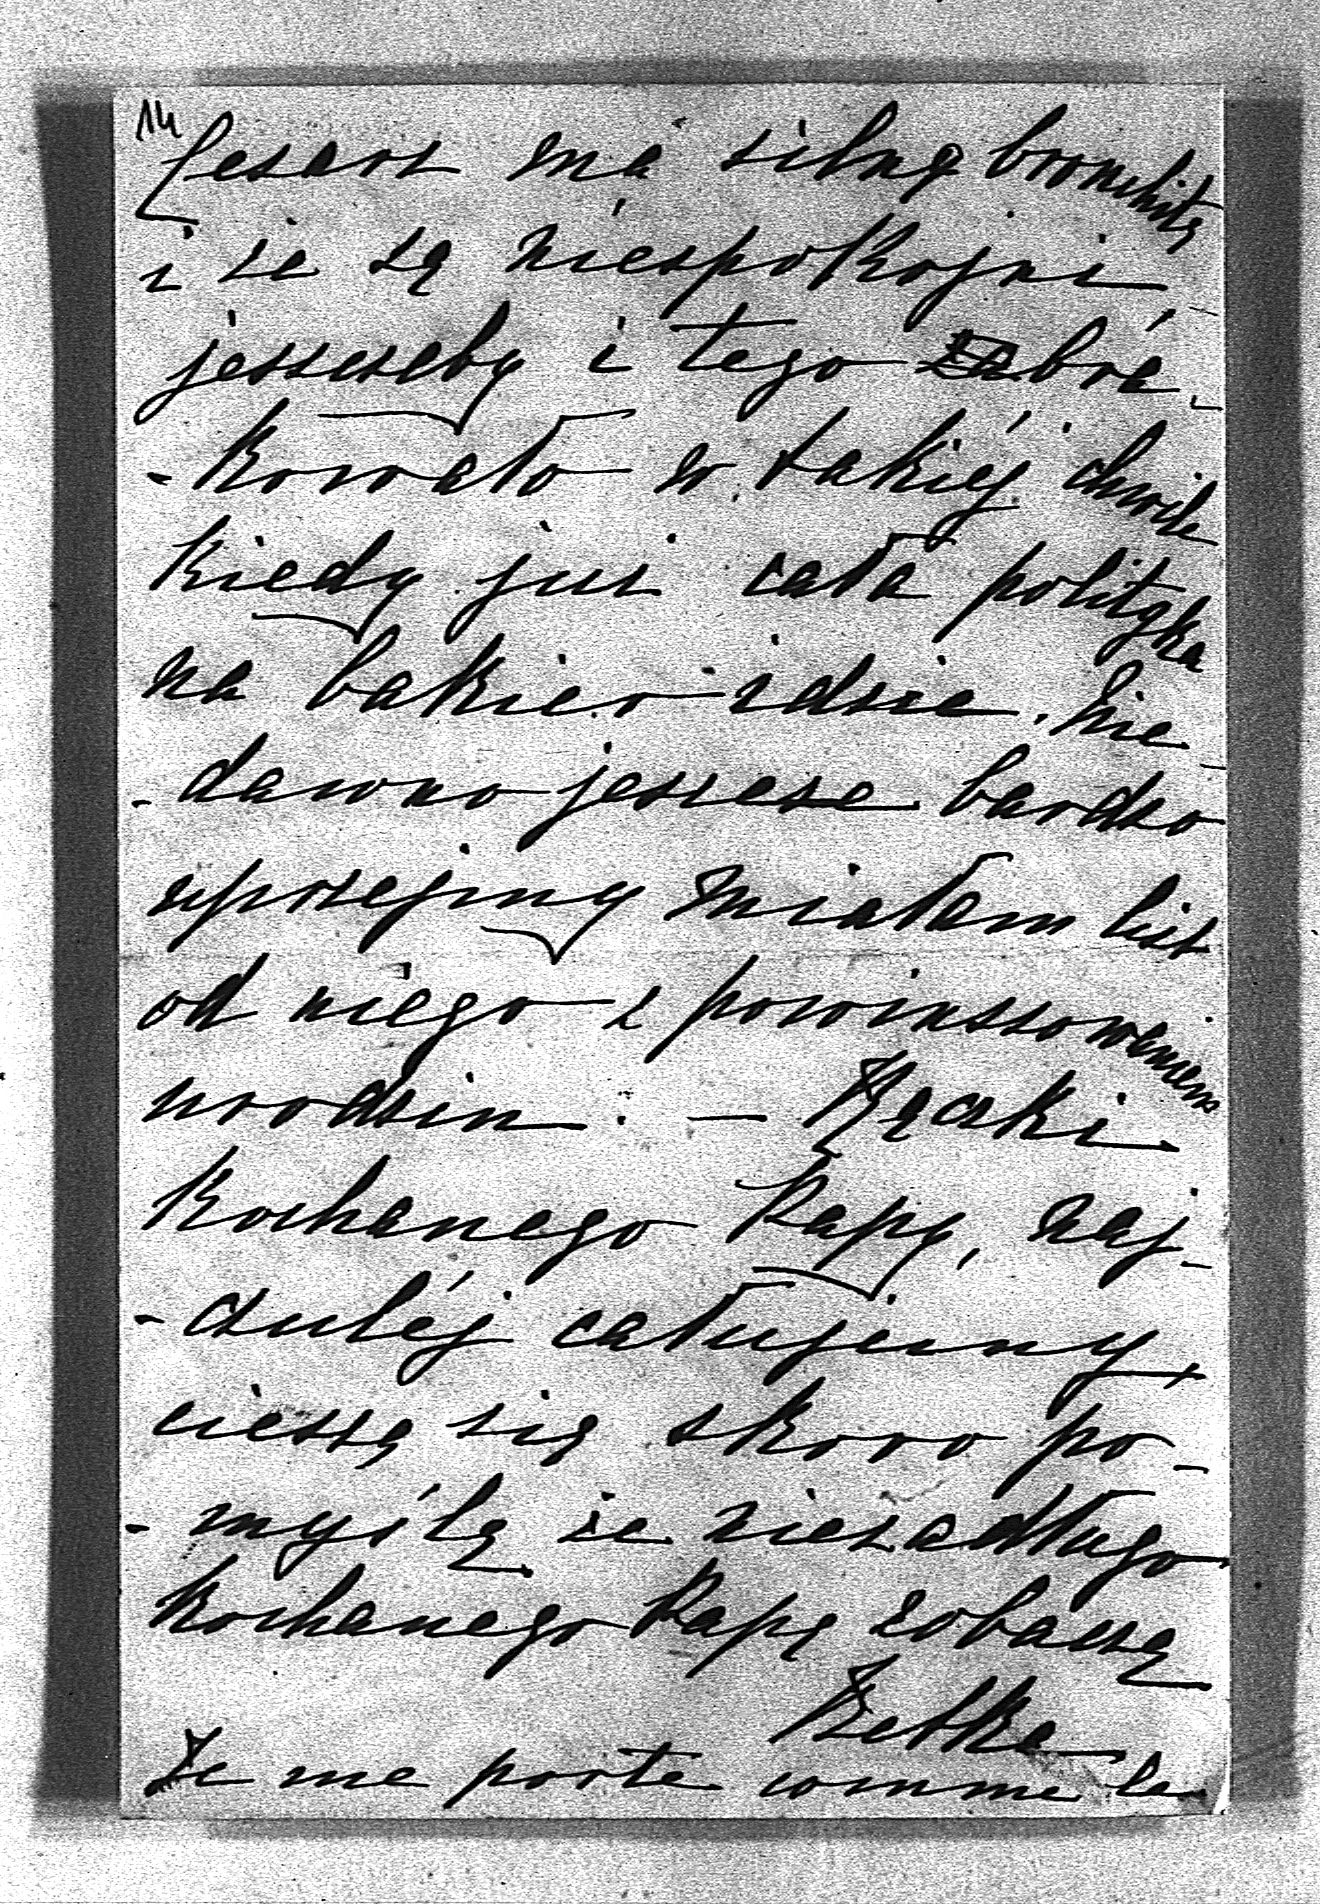 14
Cesarz ma silną bronchitę
i że są niespokojni
jeszczeby i tego brá-
-kowało w takiéj chwili
kiedy już cała polityka
na bakier idzie. Nie-
-dawno jeszcze bardzo
uprzejmy miałam list
od niego z powinszowaniem
urodzin. — Rączki
kochanego Papy, naj-
-czuléj całujemy,
cieszę się skoro po-
-myślę że niezadługo
kochanego Papę zobaczę
Betka
Je me porte comme le